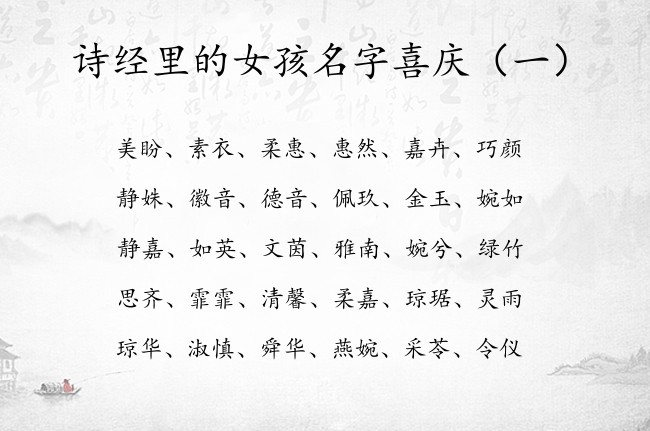 诗经里的女孩名字喜庆（一）
美盼、素衣、柔惠、惠然、嘉卉、巧颜
静姝、徽音、德音、佩玖、金玉、婉如
静嘉、如英、文茵、雅南、婉兮、绿竹
思齐、霏霏、清馨、柔嘉、琼琚、灵雨
琼华、淑慎、舜华、燕婉、采苓、令仪